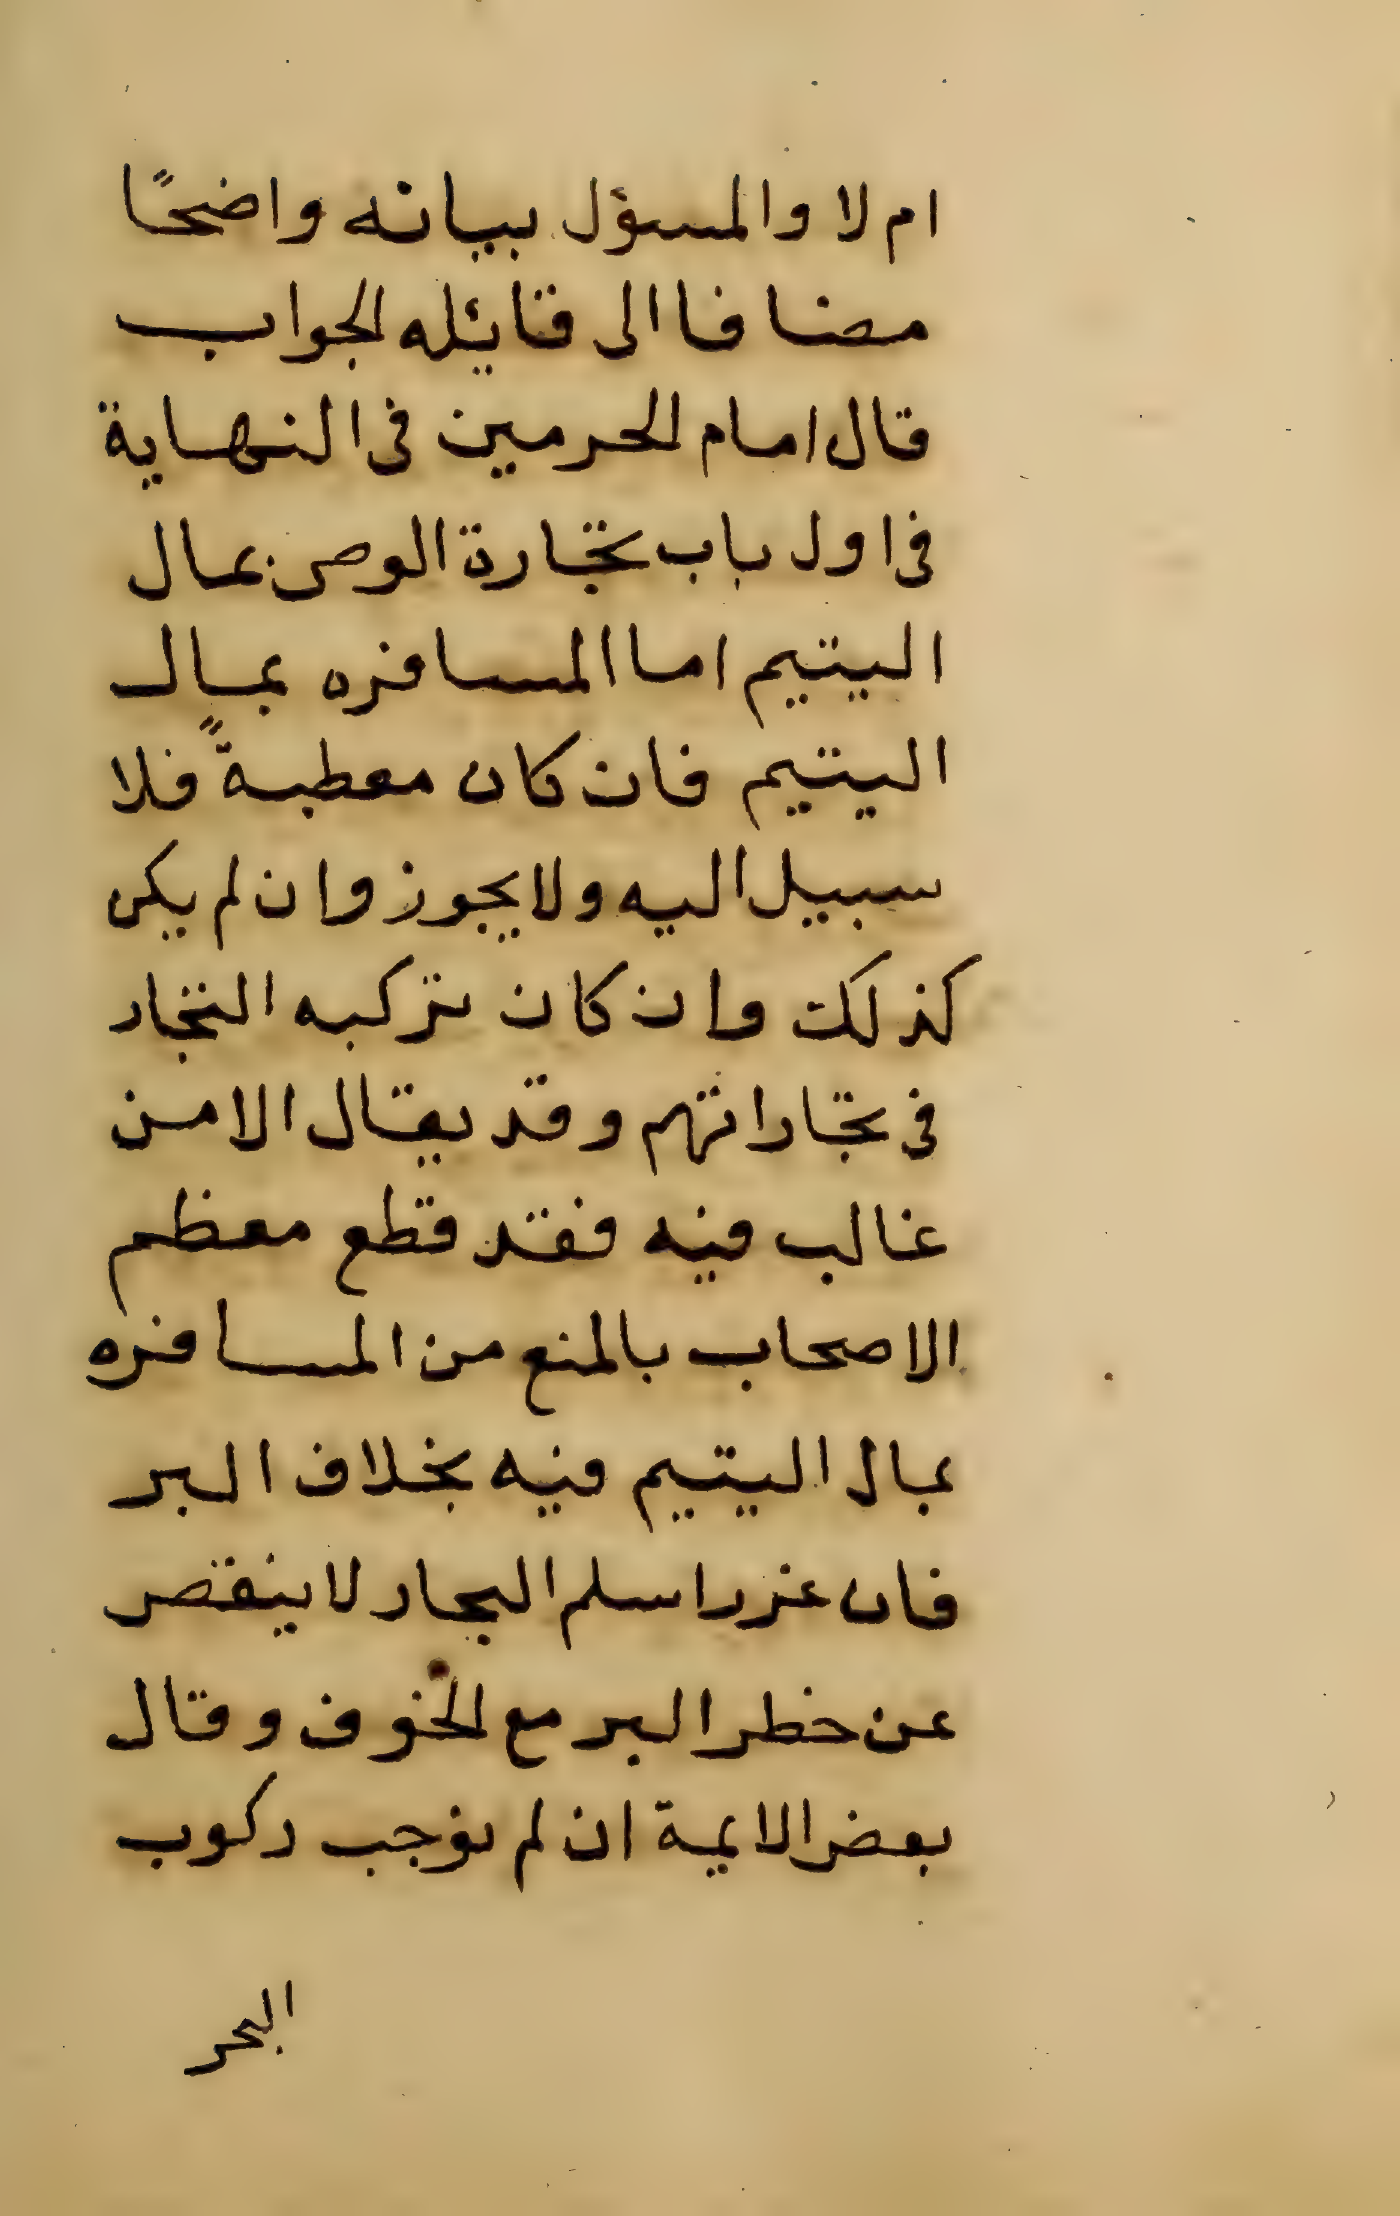 ام لا والمسؤل بيانه واضحًا
مضافا الى قائله الجواب
قال امام الحرمين فى النهاية
فى اول باب تجارة الوصى بمال
اليتيم اما المسافره بمال
اليتيم فان كان معطبةً فلا
سبيل اليه ولا يجوز وان لم يكن
كذلك وان كان تركبه التجار
فى تجاراتهم وقد يقال الامن
غالب فيه فقد قطع معظم
الاصحاب بالمنع من المسافره
بمال اليتيم فيه بخلاف البر
فان غزرا سلم البحار لا ينقص
عن خطر البر مع الخوف وقال
بعض الايمة ان لم نوجب ركوب
البحر